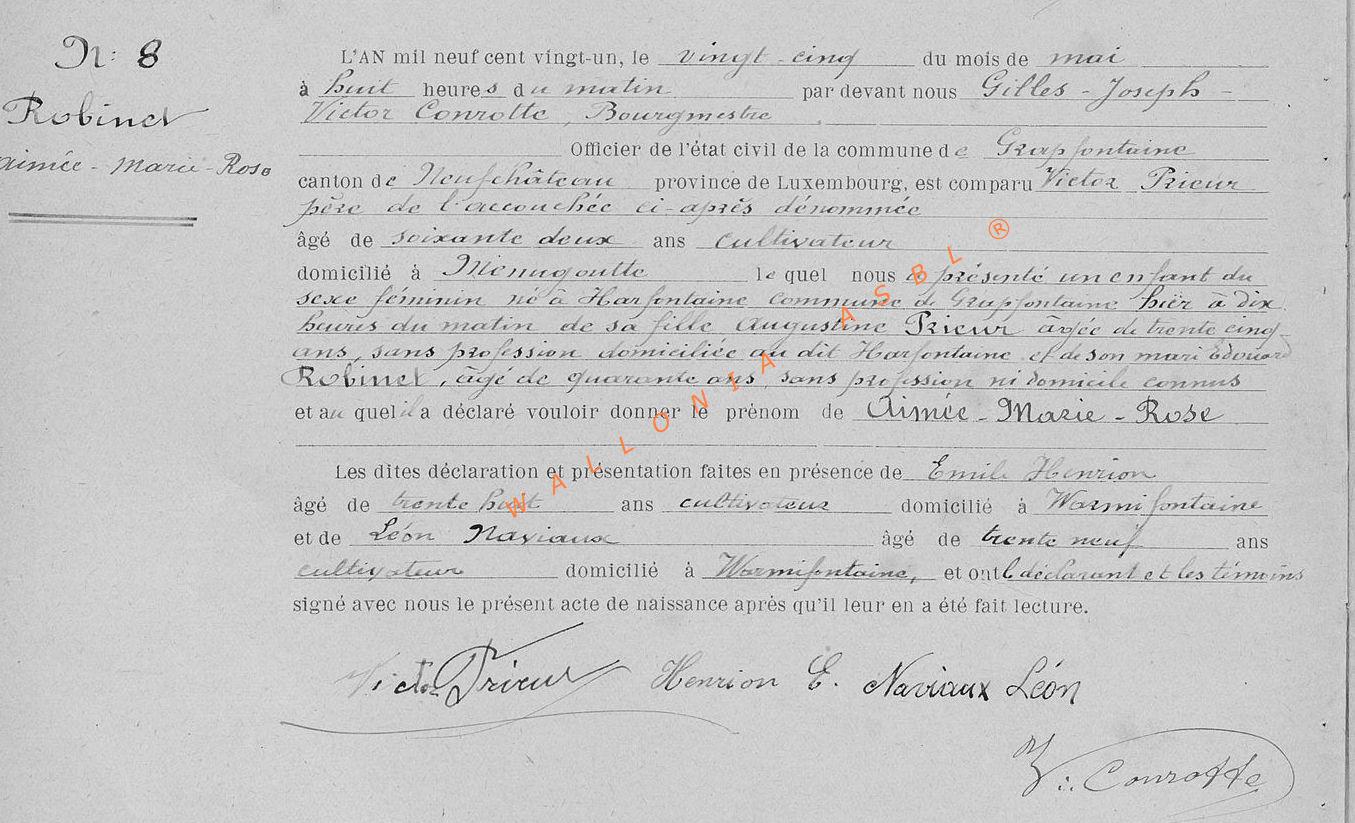 N: 8
Robinet
Aimée - Marie - Rose
L'AN mil neuf cent vingt-un, le vingt-cinq du mois de mai
à huit heures du matin par devant nous Gilles - Joseph -
Victor Conrotte, Bourgmestre
Officier de l'état civil de la commune de Grapfontaine
canton de Neufchâteau province de Luxembourg, est comparu Victor Prieur
père de l'accouchée ci-après dénommée
âgé de soixante deux ans cultivateur
domicilié à Menugoutte lequel nous a présenté un enfant du
sexe féminin né à Harfontaine commune de Grapfontaine hier à dix
heures du matin de sa fille Augustine Prieur âgée de trente cinq
ans, sans profession domiciliée au dit Harfontaine et de son mari Edouard
Robinet, âgé de quarante ans, sans profession ni domicile connus
et auquel il a déclaré vouloir donner le prénom de Aimée - Marie - Rose
Les dites déclaration et présentation faites en présence de Emile Henrion
âgé de trente huit ans cultivateur domicilié à Warmifontaine
et de Léon Naviaux âgé de trente neuf ans
cultivateur domicilié à Warmifontaine, et ont le déclarant et les témoins
signé avec nous le présent acte de naissance après qu'il leur en a été fait lecture.
Victor Prieur Henrion E. Naviaux Léon
V: Conrotte
WALLONIA ASBL ®